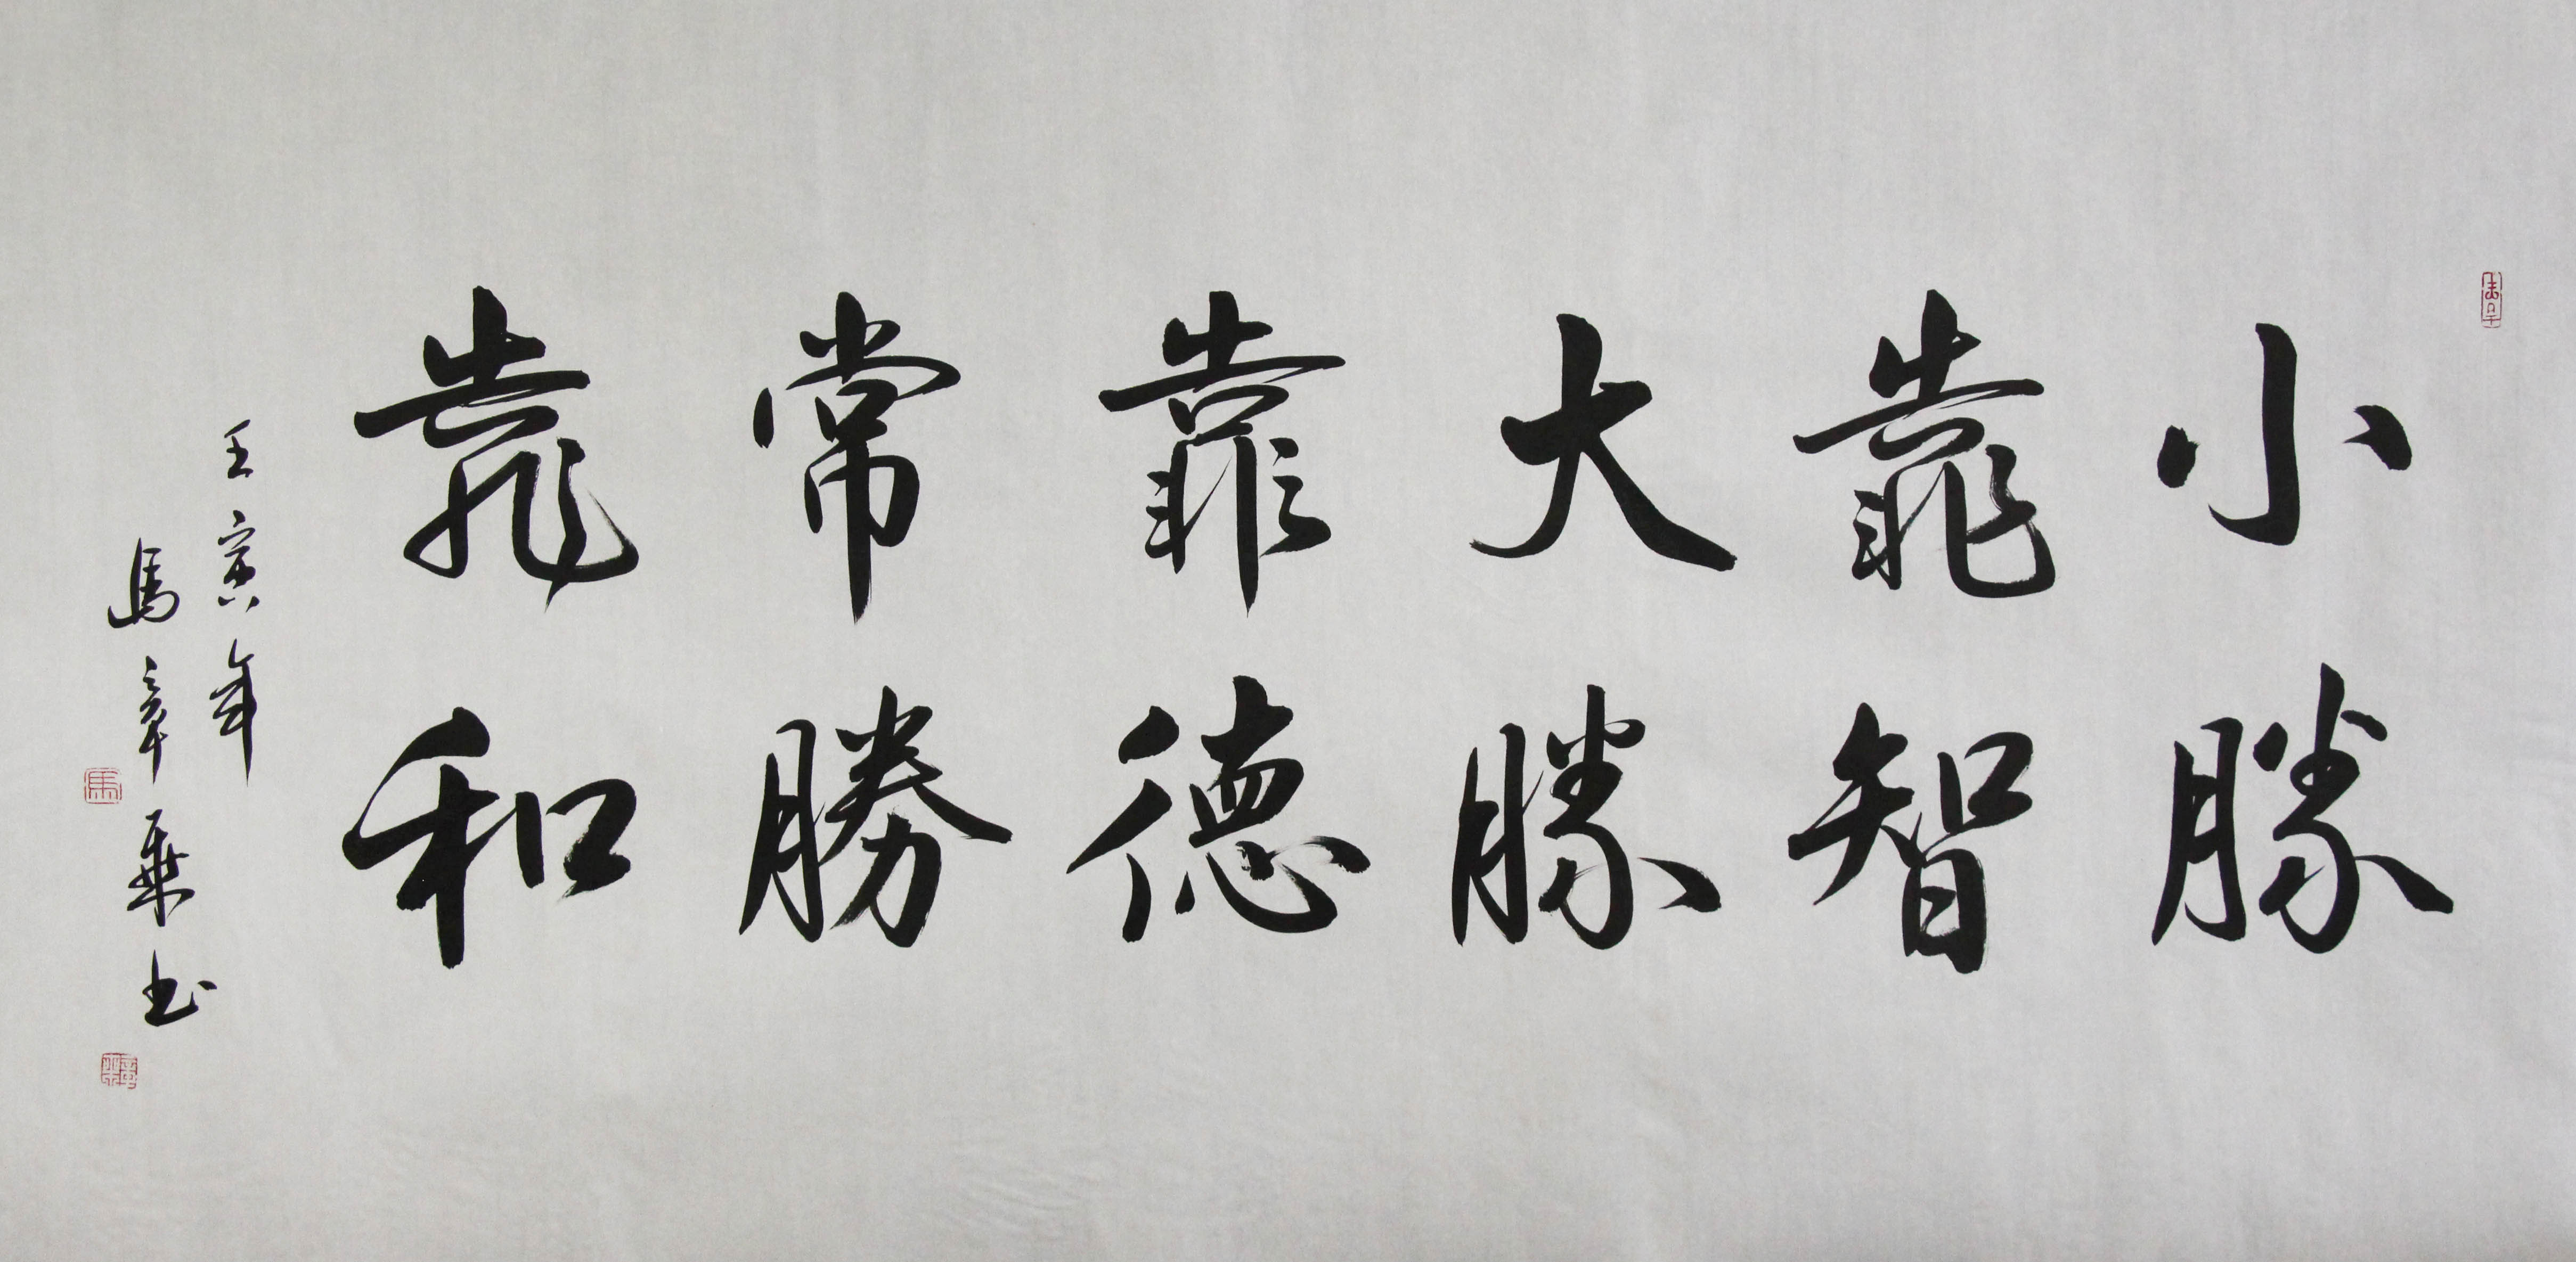 小勝
靠智
大勝
靠德
常勝
靠和
壬寅年
馬章乘书
馬